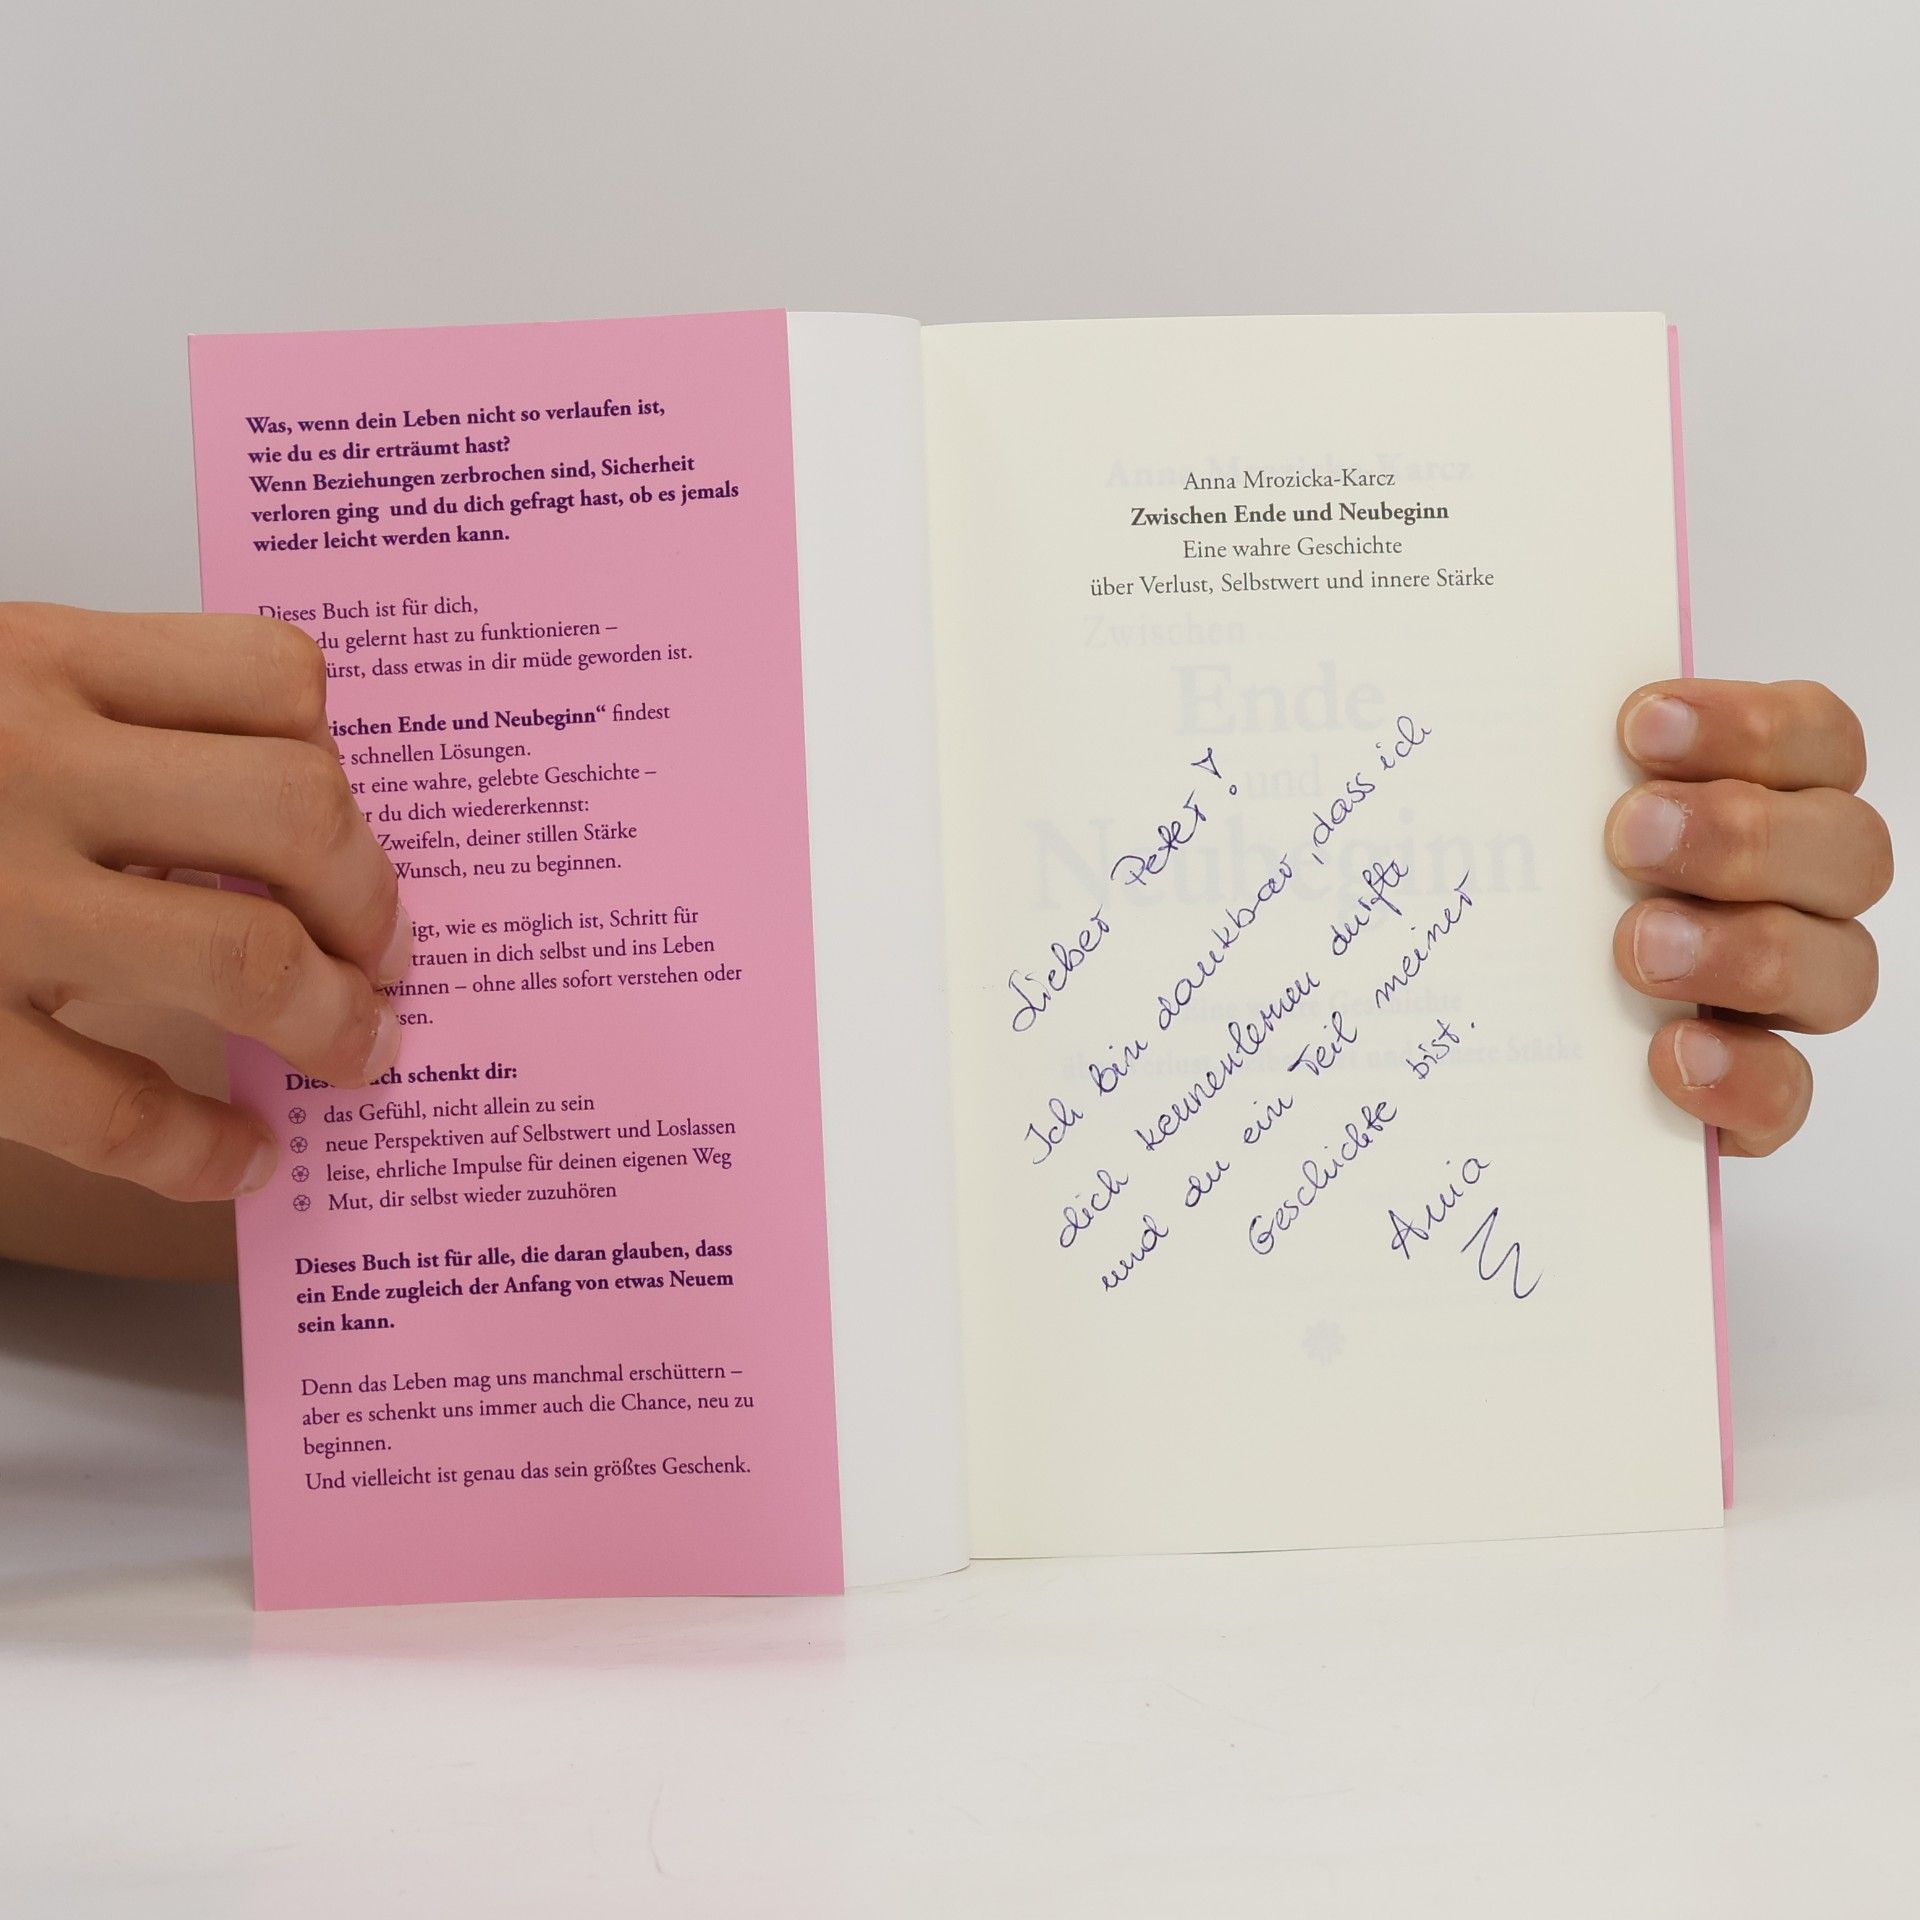 Was, wenn dein Leben nicht so verlaufen ist,
wie du es dir erträumt hast?
Wenn Beziehungen zerbrochen sind, Sicherheit
verloren ging und du dich gefragt hast, ob es jemals
wieder leicht werden kann.
Dieses Buch ist für dich,
du gelernt hast zu funktionieren –
ürst, dass etwas in dir müde geworden ist.
ischen Ende und Neubeginn“ findest
schnellen Lösungen.
st eine wahre, gelebte Geschichte –
r du dich wiedererkennst:
Zweifeln, deiner stillen Stärke
Wunsch, neu zu beginnen.
igt, wie es möglich ist, Schritt für
trauen in dich selbst und ins Leben
winnen – ohne alles sofort verstehen oder
sen.
Dies ch schenkt dir:
das Gefühl, nicht allein zu sein
neue Perspektiven auf Selbstwert und Loslassen
leise, ehrliche Impulse für deinen eigenen Weg
Mut, dir selbst wieder zuzuhören
Dieses Buch ist für alle, die daran glauben, dass
ein Ende zugleich der Anfang von etwas Neuem
sein kann.
Denn das Leben mag uns manchmal erschüttern –
aber es schenkt uns immer auch die Chance, neu zu
beginnen.
Und vielleicht ist genau das sein größtes Geschenk.
Anna Mrozicka-Karcz
Zwischen Ende und Neubeginn
Eine wahre Geschichte
über Verlust, Selbstwert und innere Stärke
Lieber Peter!
Ich bin dankbar, dass ich
dich kennenlernen durfte
und du ein Teil meiner
Geschichte bist.
Ania